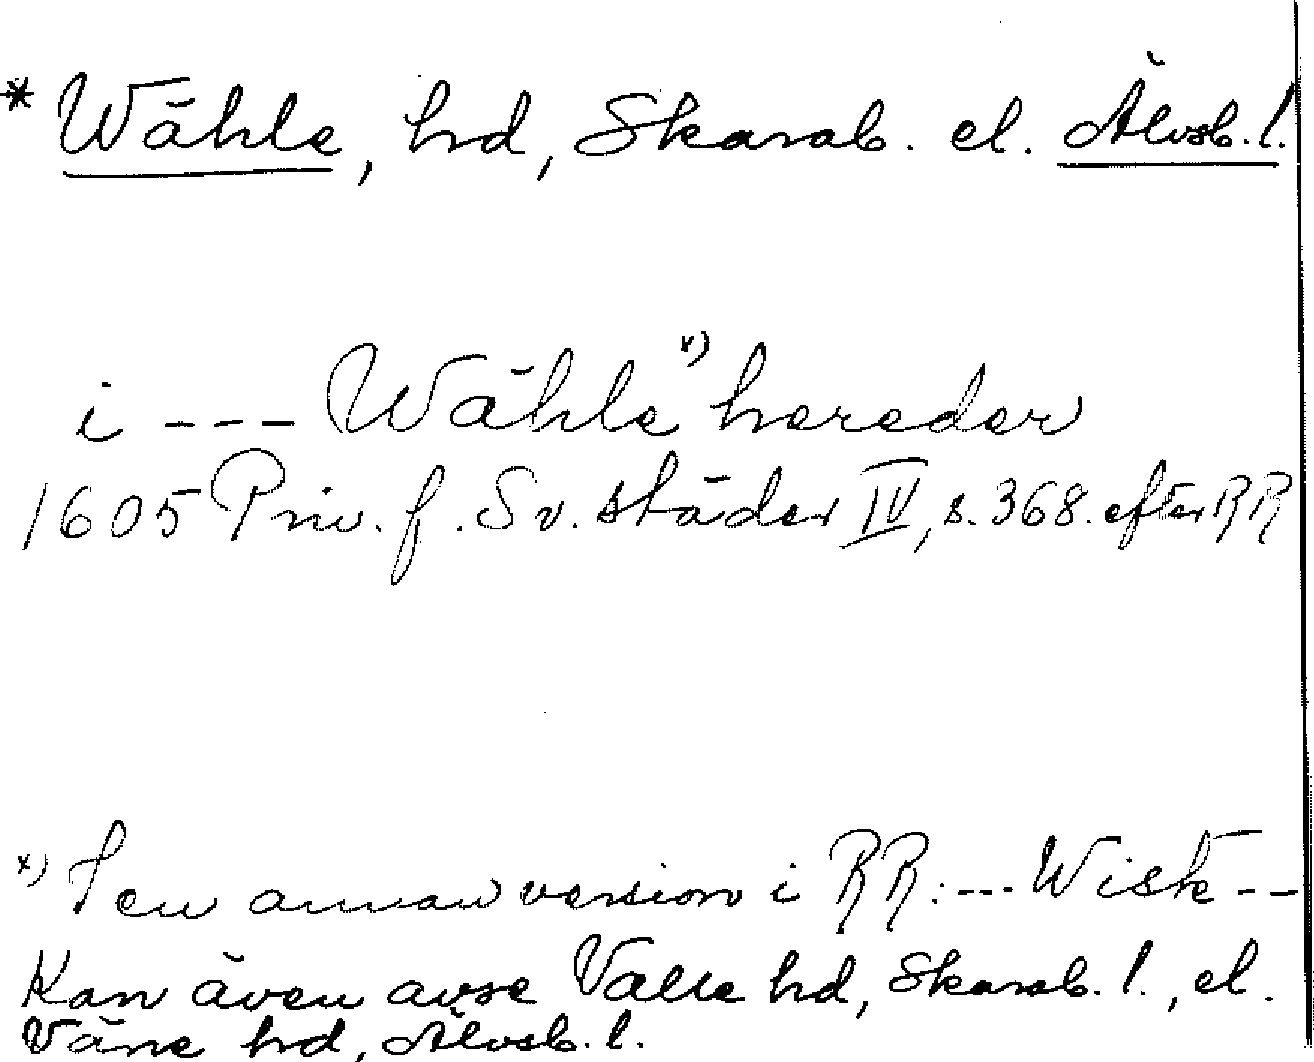 * Wähle, hd, Skarab. el. Älvsb. l.
i --- Wähle x) hereder
1605 Priv. f. Sv. städer IV, s. 368. efter RR
x) I en annan version i RR: --- Wisk --
Kan även avse Valle hd, Skarab. l., el.
Väne hd, Älvsb. l.